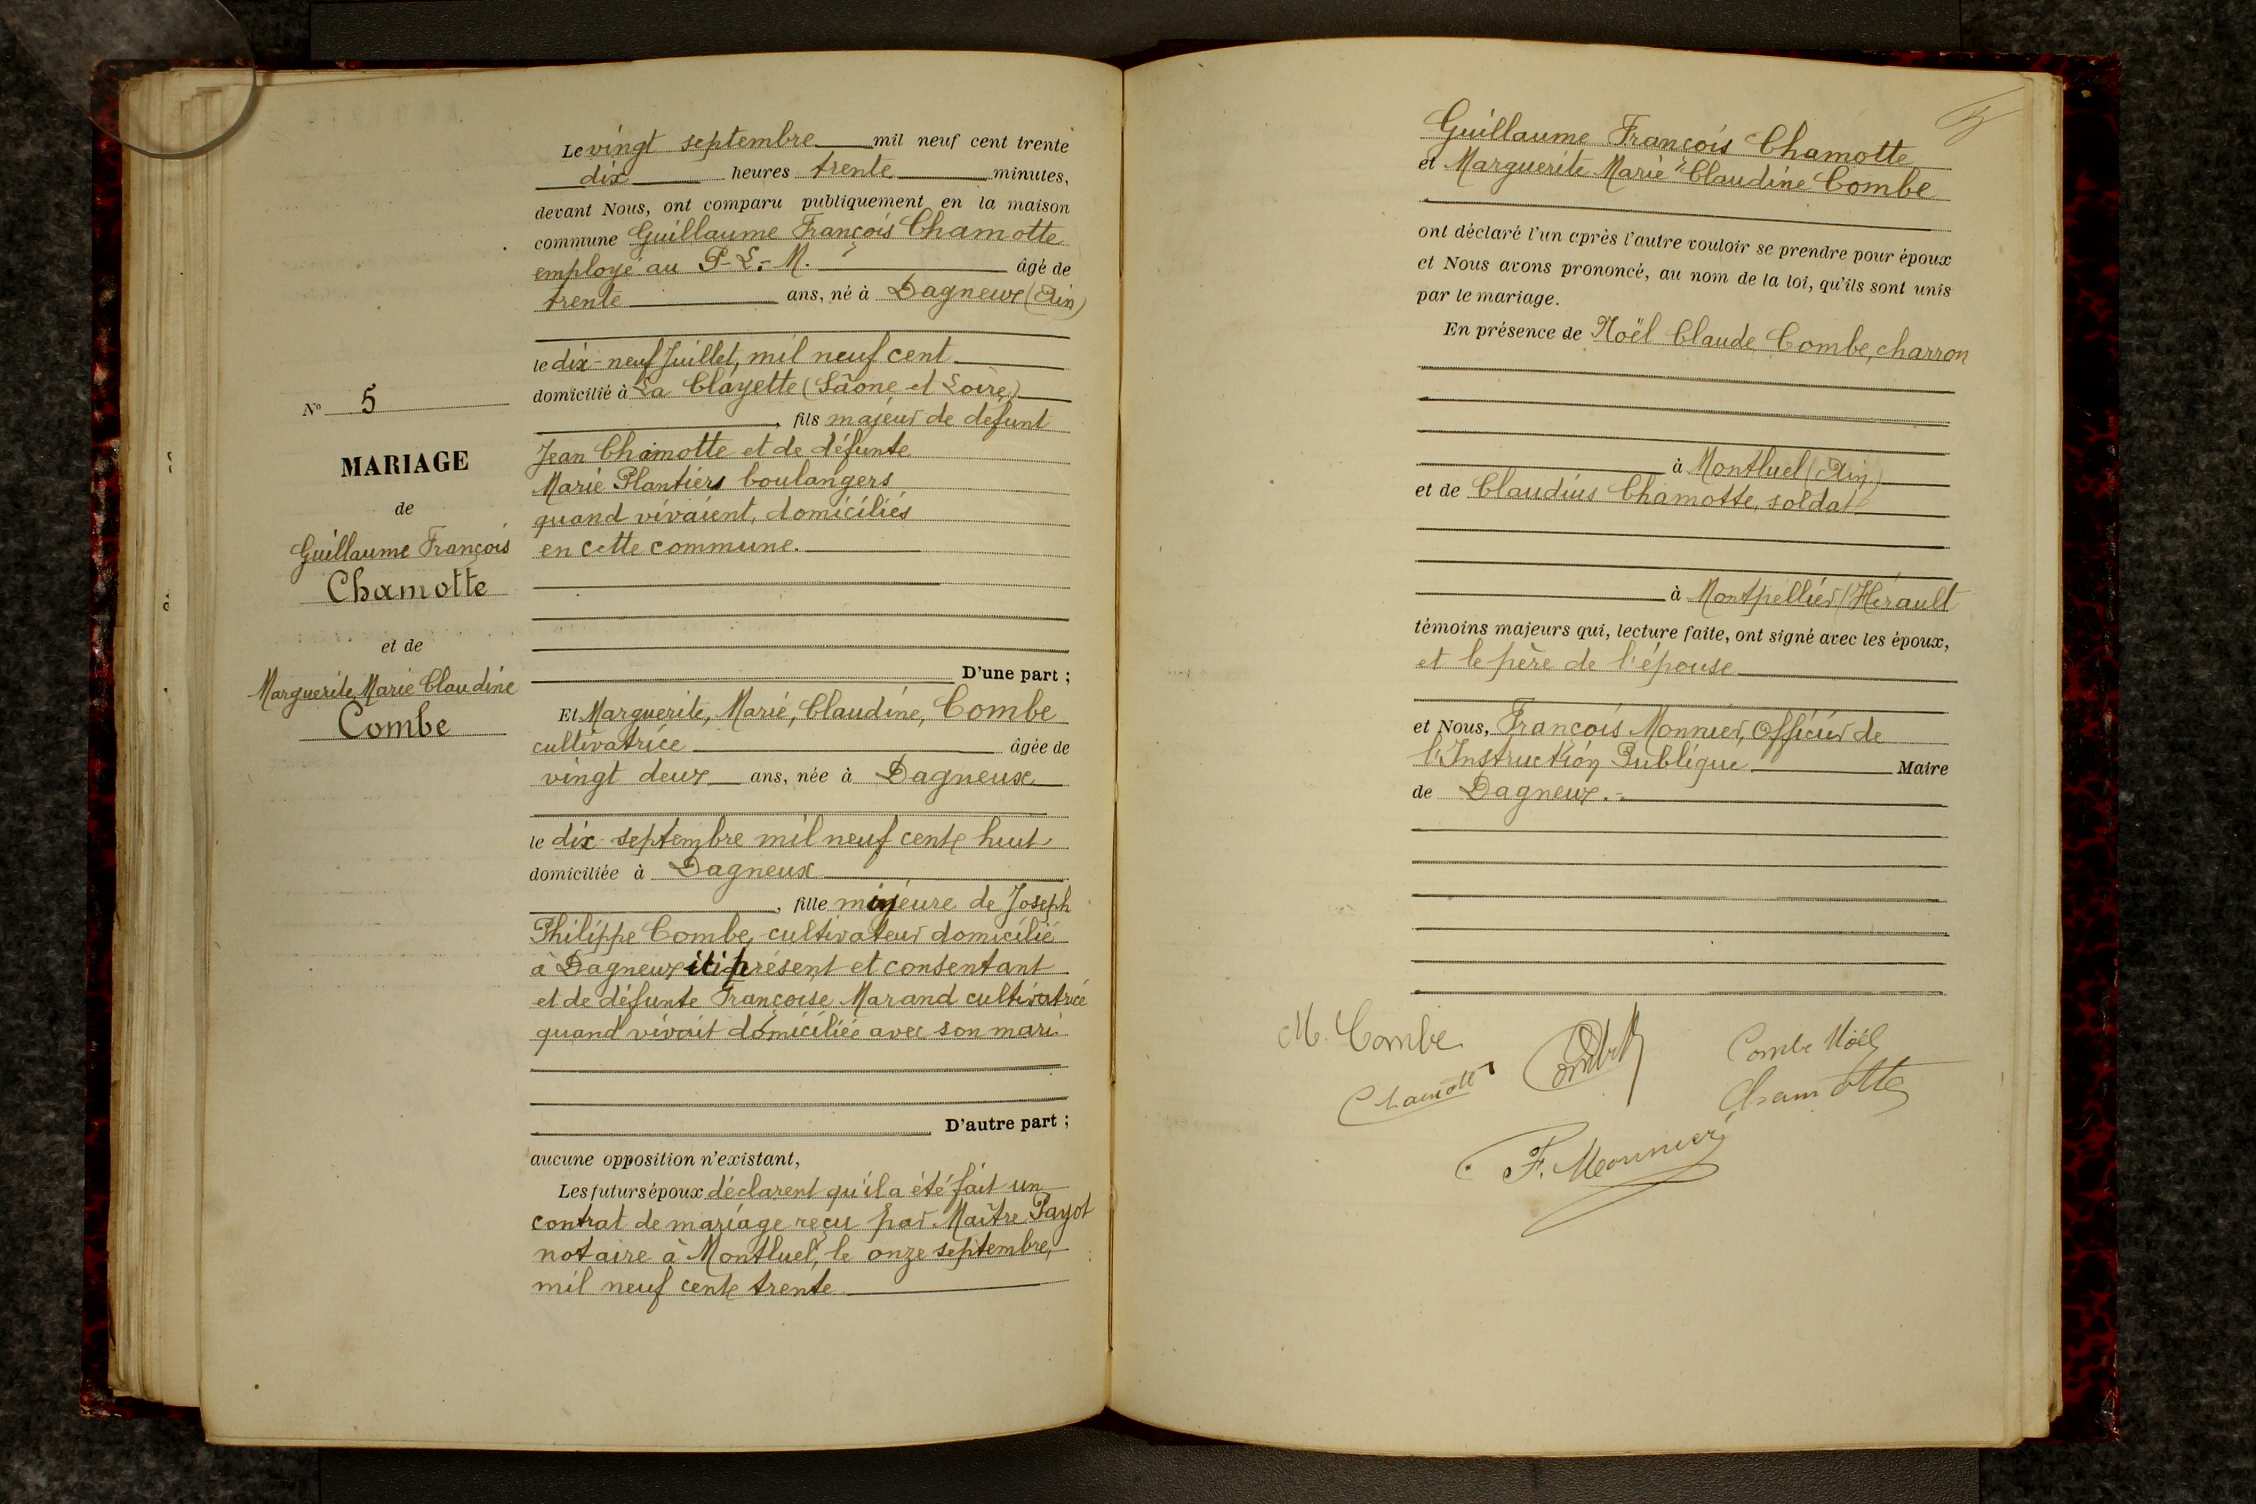 Le vingt septembre mil neuf cent trente
dix heures trente minutes,
devant Nous, ont comparu publiquement en la maison
commune Guillaume François Chamotte
employé au P.-L.-M. âgé de
trente ans, né à Dagneux (Ain)
le dix-neuf Juillet, mil neuf cent
domicilié à La Clayette (Sâone et Loire)
, fils majeur de défunt
Jean Chamotte et de défunte
Marie Plantiers boulangers
quand vivaient, domiciliés
en cette commune.
D'une part ;
Et Marguerite, Marie, Claudine, Combe
cultivatrice âgée de
vingt deux ans, née à Dagneux
le dix septembre mil neuf cent huit
domiciliée à Dagneux
, fille majeure de Joseph
Philippe Combe, cultivateur domicilié
à Dagneux ici présent et consentant
et de défunte Françoise Marand cultivatrice
quand vivait domiciliée avec son mari.
D'autre part ;
aucune opposition n'existant,
Les futurs époux déclarent qu'il a été fait un
contrat de mariage reçu par Maître Payot
notaire à Montluel, le onze septembre,
mil neuf cent trente
N° 5
MARIAGE
de
Guillaume François
Chamotte
et de
Marguerite Marie Claudine
Combe
Guillaume François Chamotte
et Marguerite Marie Claudine Combe
ont déclaré l'un après l'autre vouloir se prendre pour époux
et Nous avons prononcé, au nom de la loi, qu'ils sont unis
par le mariage.
En présence de Noël Claude Combe, charron
à Montluel (Ain)
et de Claudius Chamotte, soldat
à Montpellier (Hérault
témoins majeurs qui, lecture faite, ont signé avec les époux,
et le père de l'épouse
et Nous, François Monnier, Officier de
l'Instruction Publique Maire
de Dagneux.-.
M. Combe
Chamotte
Combe
Combe Noël
Chamotte
F. Monnier